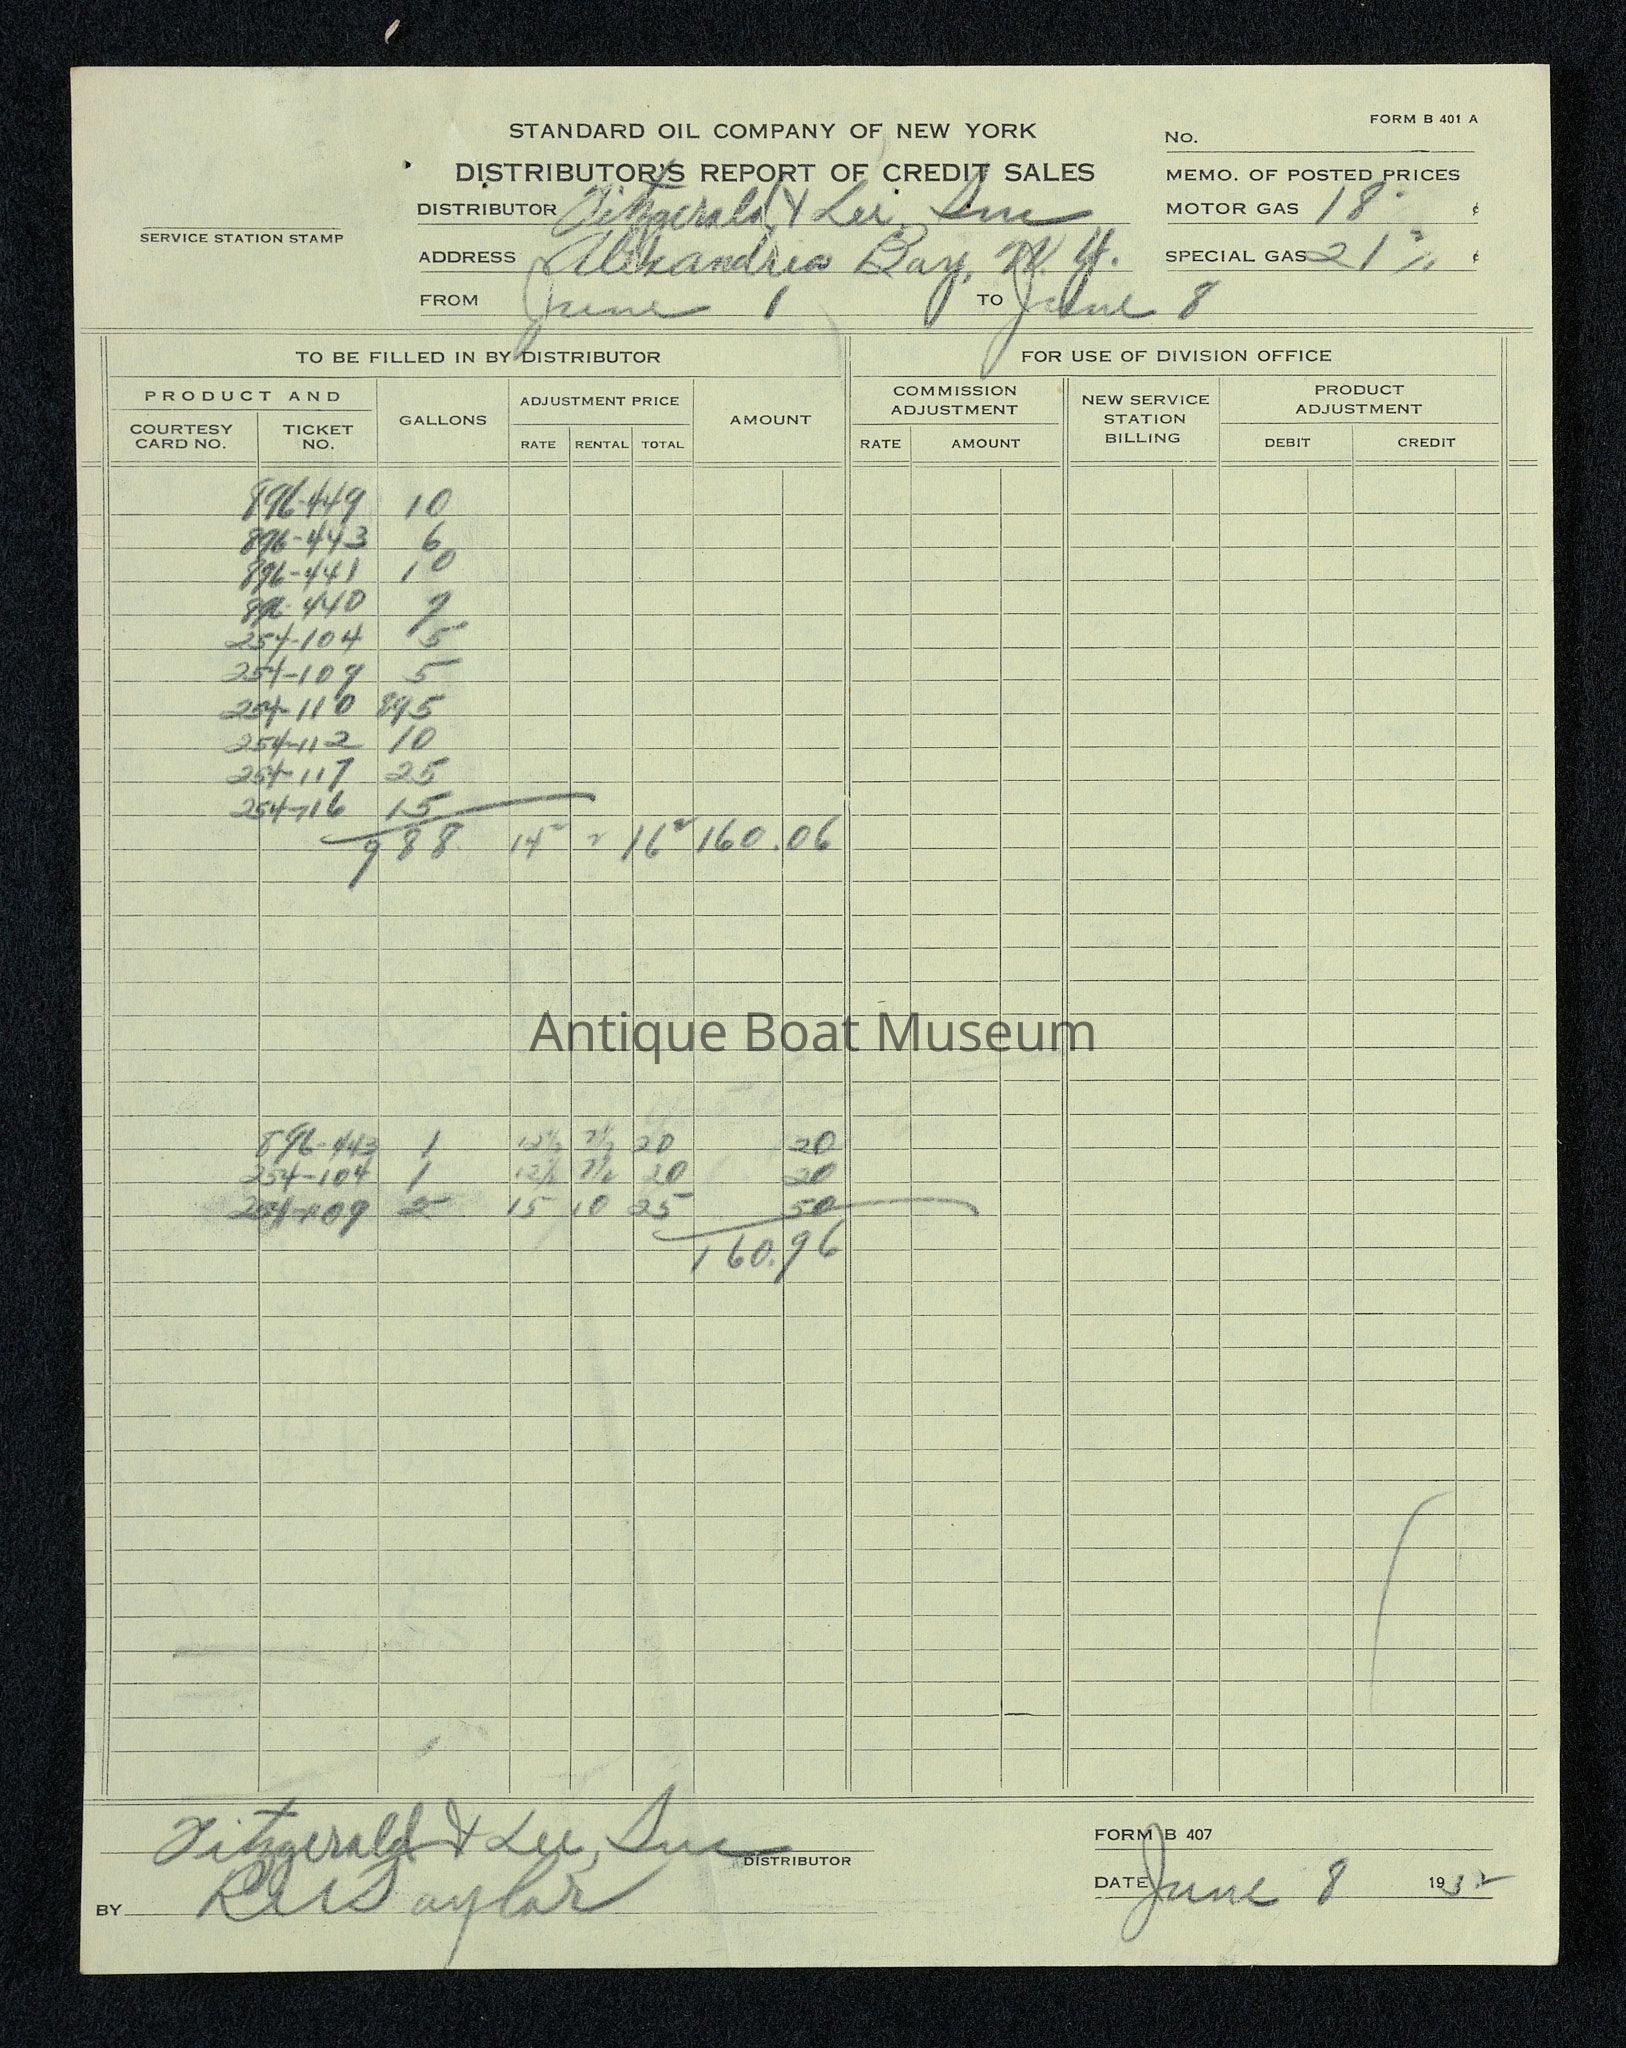 FORM B 401 A
STANDARD OIL COMPANY OF NEW YORK
No.
DISTRIBUTOR'S REPORT OF CREDIT SALES
MEMO. OF POSTED PRICES
DISTRIBUTOR Fitzgerald & Lee, Inc
MOTOR GAS 18 ¢
SERVICE STATION STAMP
ADDRESS Alexandria Bay, N. Y.
SPECIAL GAS 21 ¢
FROM June 1 TO June 8
TO BE FILLED IN BY DISTRIBUTOR FOR USE OF DIVISION OFFICE
PRODUCT AND GALLONS ADJUSTMENT PRICE AMOUNT COMMISSION ADJUSTMENT NEW SERVICE STATION BILLING PRODUCT ADJUSTMENT
COURTESY CARD NO. TICKET NO. RATE RENTAL TOTAL RATE AMOUNT DEBIT CREDIT
896-449 10
896-443 6
896-441 10
896-440 7
254-104 5
254-109 5
254-110 895
254-112 10
254-117 25
254-116 15
988 14² 2 16² 160.06
Antique Boat Museum
896-443 1 12½ 7½ 20 20
254-104 1 12½ 7½ 20 20
254-109 2 15 10 25 50
160.96
Fitzgerald & Lee, Inc
DISTRIBUTOR
FORM B 407
BY Taylor
DATE June 8 1932